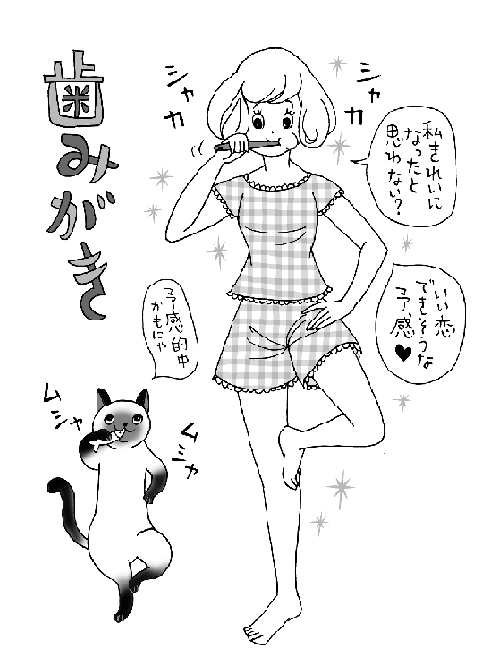 歯みがき
シャカ
シャカ
私きれいに
なったと
思わない？
いい恋
できそうな
予感♥
予感的中
かもにゃ
ムシャ
ムシャ